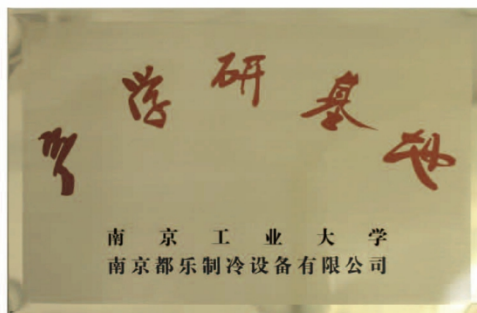 产学研基地
南京工业大学
南京都乐制冷设备有限公司